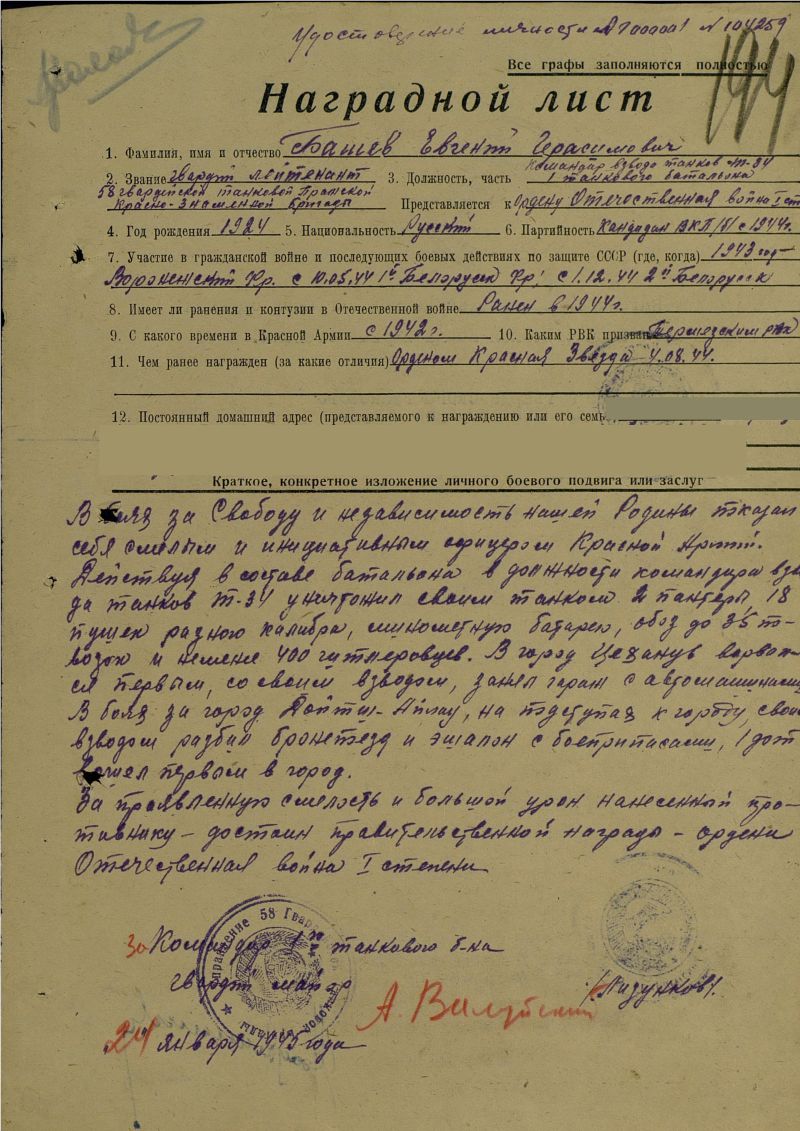 Удостоверение личности А 7000001 N 104259
Все графы заполняются полностью
Наградной лист
1. Фамилия, имя и отчество Башев Евгений Герасимович
Командир взвода танков Т-34
2. Звание гвардии лейтенант 3. Должность, часть 1 танкового батальона
58 гвардейской танковой Пражской
Красно-Знаменной бригады Представляется к Ордену Отечественная война I ст
4. Год рождения 1924 5. Национальность Русский 6. Партийность Кандидат ВКП/б/ с 1944г.
7. Участие в гражданской войне и последующих боевых действиях по защите СССР (где, когда) 1943 год-
Воронежский Фр. с 10.05.44 1й Белорусск Фр! с 1.12.44 2й Белорусск
8. Имеет ли ранения и контузии в Отечественной войне Ранен в 1944г.
9. С какого времени в Красной Армии с 1942г. 10. Каким РВК призван
11. Чем ранее награжден (за какие отличия) Орденом Красная Звезда 4.08.44.
12. Постоянный домашний адрес (представляемого к награждению или его семь
Краткое, конкретное изложение личного боевого подвига или заслуг
В боях за Свободу и независимость нашей Родины показал
себя смелым и инициативным офицером Красной Армии.
Действуя в составе батальона в должности командира взво
да танков Т-34 уничтожил своим танком 2 пантеры, 18
пушек разного калибра, минометную батарею, обоз до 35 по-
возок и немене 400 гитлеровцев. В город Цеханув ворвал-
ся первым, со своим взводом, занял гараж с автомашинами
В боях за город Дойтш-Айлау, на подступах к городу, своим
взводом разбил бронепоезд и эшалон с боеприпасами, 1 дот
вошел первым в город.
За проявленную смелость и большой урон нанесенный про-
тивнику – достоин правительственной награды – ордена
Отечественная война I степени
за Командир 1го танкового б-на
гвардии майор /Пизунков/.
А. Валуйский
24 января 1945 года
Управление 58 Гвар